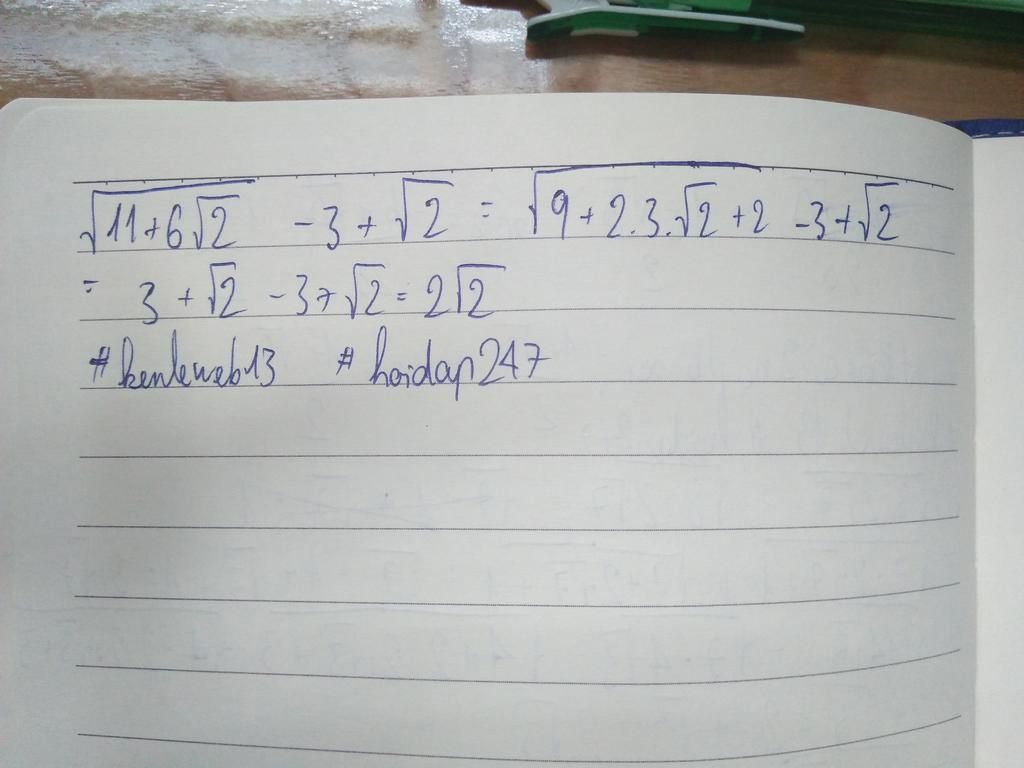 √(11+6√2) -3 + √2 = √(9 + 2.3.√2 + 2) -3+√2
= 3 + √2 -3+ √2 = 2√2
#kenleweb13 #hoidap247